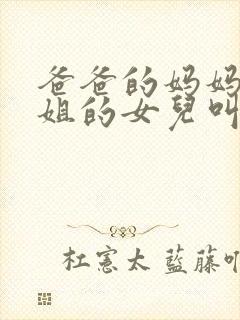 爸爸的妈妈
姐的女兒叫
杜憲太 藍藤